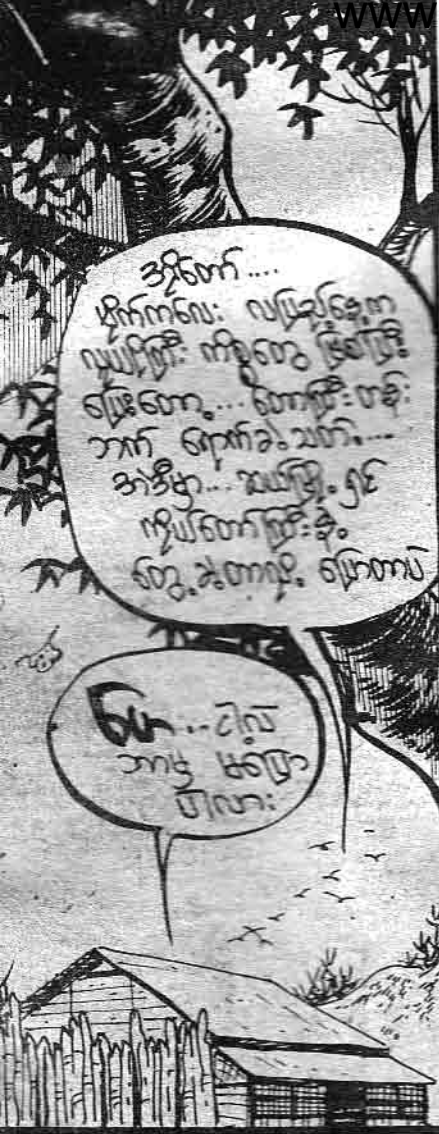 WWW
အရှိတော် ....
မိုက်ကလေး လပြည့်နေ့က
လူယုံကြီး ကိစ္စတွေ ပြီး
ပြေးတော့ ... တောကြီးတန်း
ဘက် ရောက်ခဲ့သတဲ့ ....
အဲဒီမှာ ... ဆယ်မြို့ရှင်
ကိုယ်တော်ကြီးနဲ့
တွေ့ခဲ့တာလို့ ပြောတာပဲ
ဟေ ... ငါ့လဲ
ဘာမှ မပြော
ပါလား